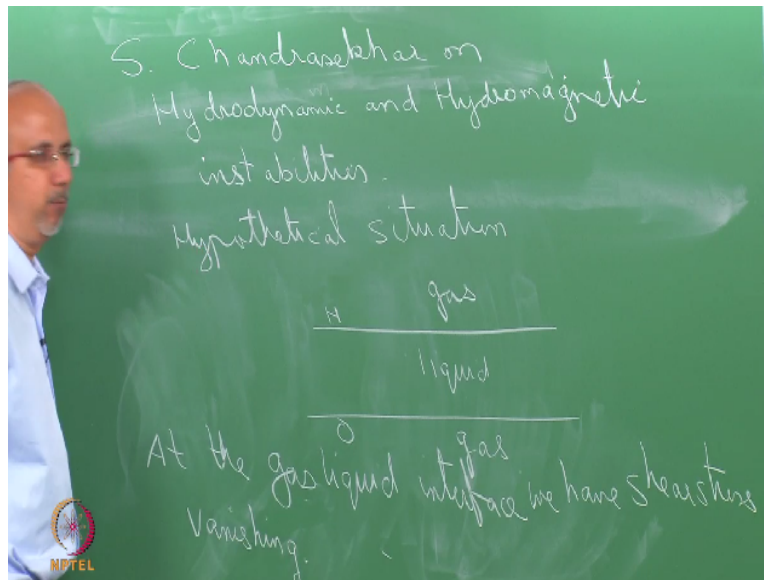 S. Chandrasekhar on
Hydrodynamic and Hydromagnetic
instabilities.
Hypothetical situation
gas
H
liquid
O
gas
At the gas liquid interface we have shear stress
vanishing.
NPTEL